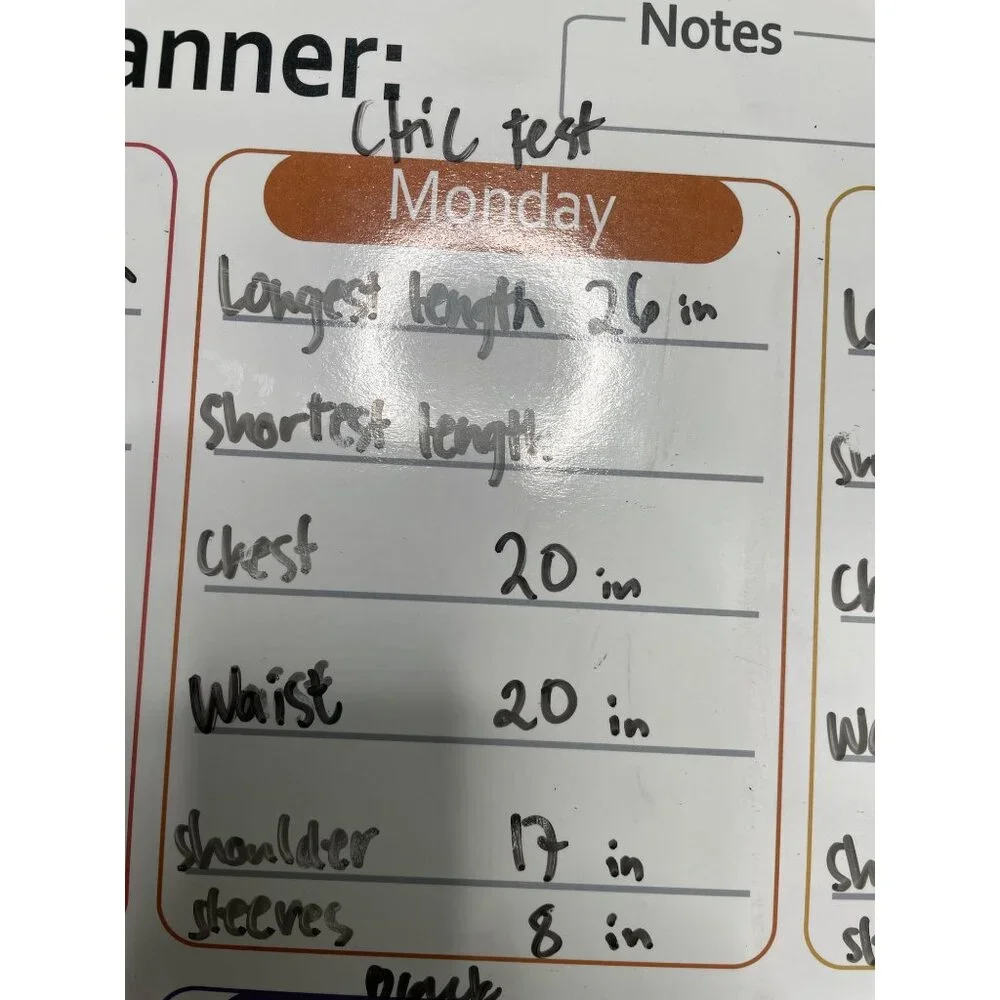 anner:
Notes
test
Monday
Longest length 26 in
Shortest length
Chest 20 in
Waist 20 in
shoulder 17 in
sleeves 8 in